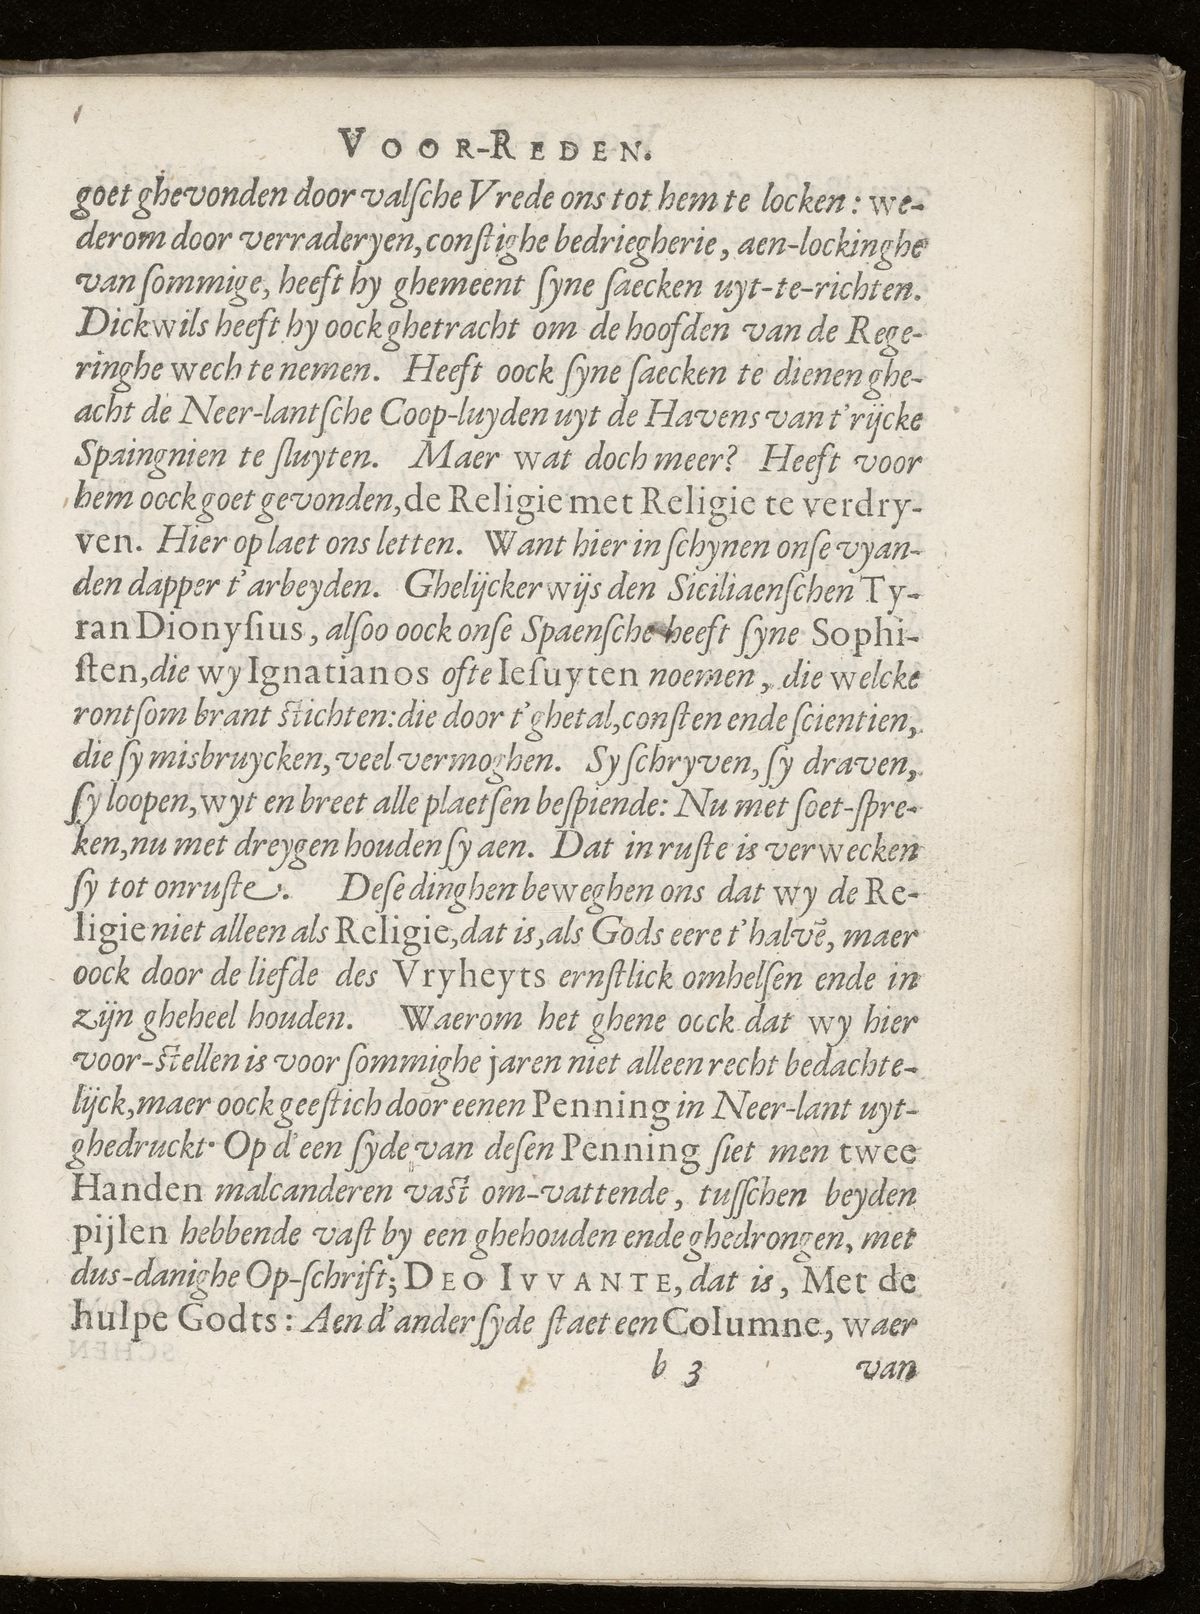 VOOR-REDEN.
goet ghevonden door valſche Vrede ons tot hem te locken: we-
derom door verraderyen, conſtighe bedriegherie, aen-lockinghe
van ſommige, heeft hy ghemeent ſyne ſaecken uyt-te-richten.
Dickwils heeft hy oock ghetracht om de hoofden van de Rege-
ringhe wech te nemen. Heeft oock ſyne ſaecken te dienen ghe-
acht de Neer-lantſche Coop-luyden uyt de Havens van t'rijcke
Spaingnien te ſluyten. Maer wat doch meer? Heeft voor
hem oock goet gevonden, de Religie met Religie te verdry-
ven. Hier op laet ons letten. Want hier in ſchynen onſe vyan-
den dapper t'arbeyden. Ghelijckerwijs den Siciliaenſchen Ty-
ran Dionyſius, alſoo oock onſe Spaenſche heeft ſyne Sophi-
ſten, die wy Ignatianos ofte Ieſuyten noemen, die welcke
rontſom brant ſtichten: die door t'ghetal, conſten ende ſcientien,
die ſy misbruycken, veel vermoghen. Sy ſchryven, ſy draven,
ſy loopen, wyt en breet alle plaetſen beſpiende: Nu met ſoet-ſpre-
ken, nu met dreygen houden ſy aen. Dat in ruſte is verwecken
ſy tot onruſte. Deſe dinghen beweghen ons dat wy de Re-
ligie niet alleen als Religie, dat is, als Gods eere t'halvē, maer
oock door de liefde des Vryheyts ernſtlick omhelſen ende in
zijn gheheel houden. Waerom het ghene oock dat wy hier
voor-ſtellen is voor ſommighe jaren niet alleen recht bedachte-
lijck, maer oock geeſtich door eenen Penning in Neer-lant uyt-
ghedruckt. Op d'een ſyde van deſen Penning ſiet men twee
Handen malcanderen vaſt om-vattende, tuſſchen beyden
pijlen hebbende vaſt by een ghehouden ende ghedrongen, met
dus-danighe Op-ſchrift; DEO IVVANTE, dat is, Met de
hulpe Godts: Aen d'ander ſyde ſtaet een Columne, waer
b 3 van